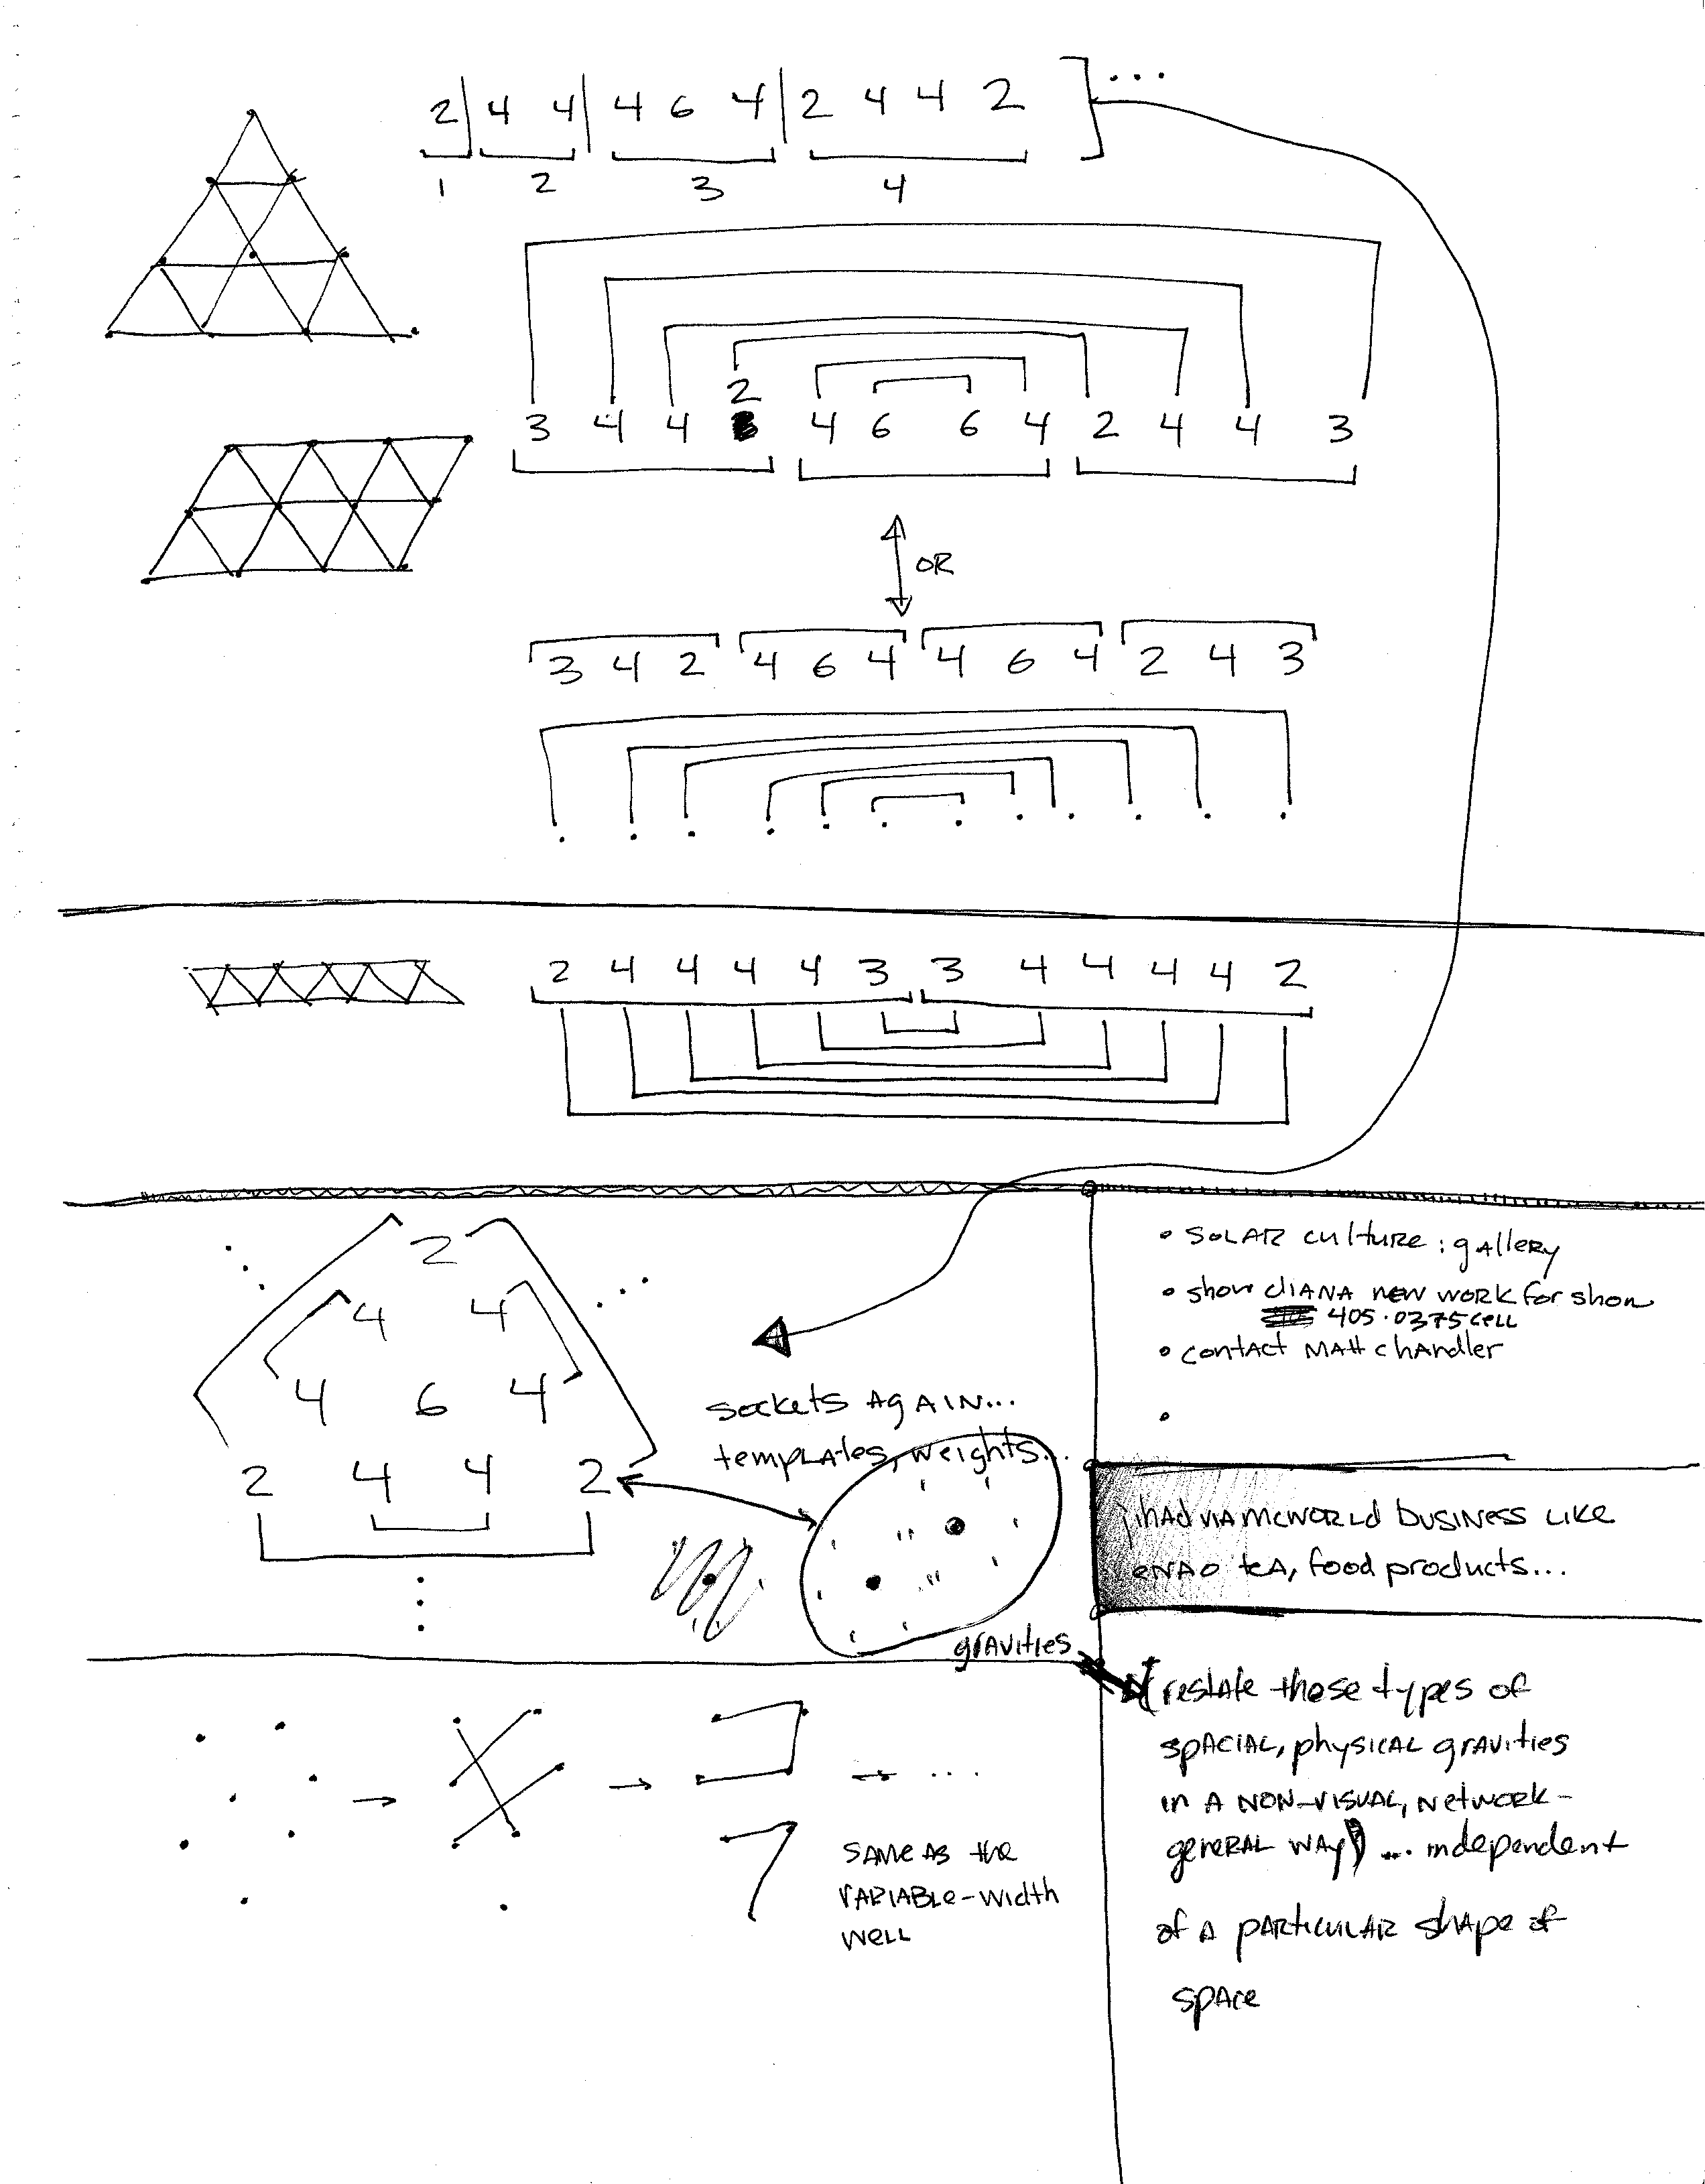 2 | 4 4 | 4 6 4 | 2 4 4 2 ] ...
1 2 3 4
2
3 4 4 4 6 6 4 2 4 4 3
OR
3 4 2 4 6 4 4 6 4 2 4 3
2 4 4 4 4 3 3 4 4 4 4 2
2
4 4
4 6 4
2 4 4 2
sockets AgAIN...
templAtes, weights...
gravities
• SOLAR culture : gAllery
• show diANA NEW WORK for show
405.0375 cell
• contact MAtt chAndler
•
jihAd VIA mcWORLd business like
teA, food products...
(restate these types of
spACIAL, physical gravities
in A NON-VISUAL, Network-
general way) ... independent
of A pArticular shape of
space
same as the
VARIABLE-width
well